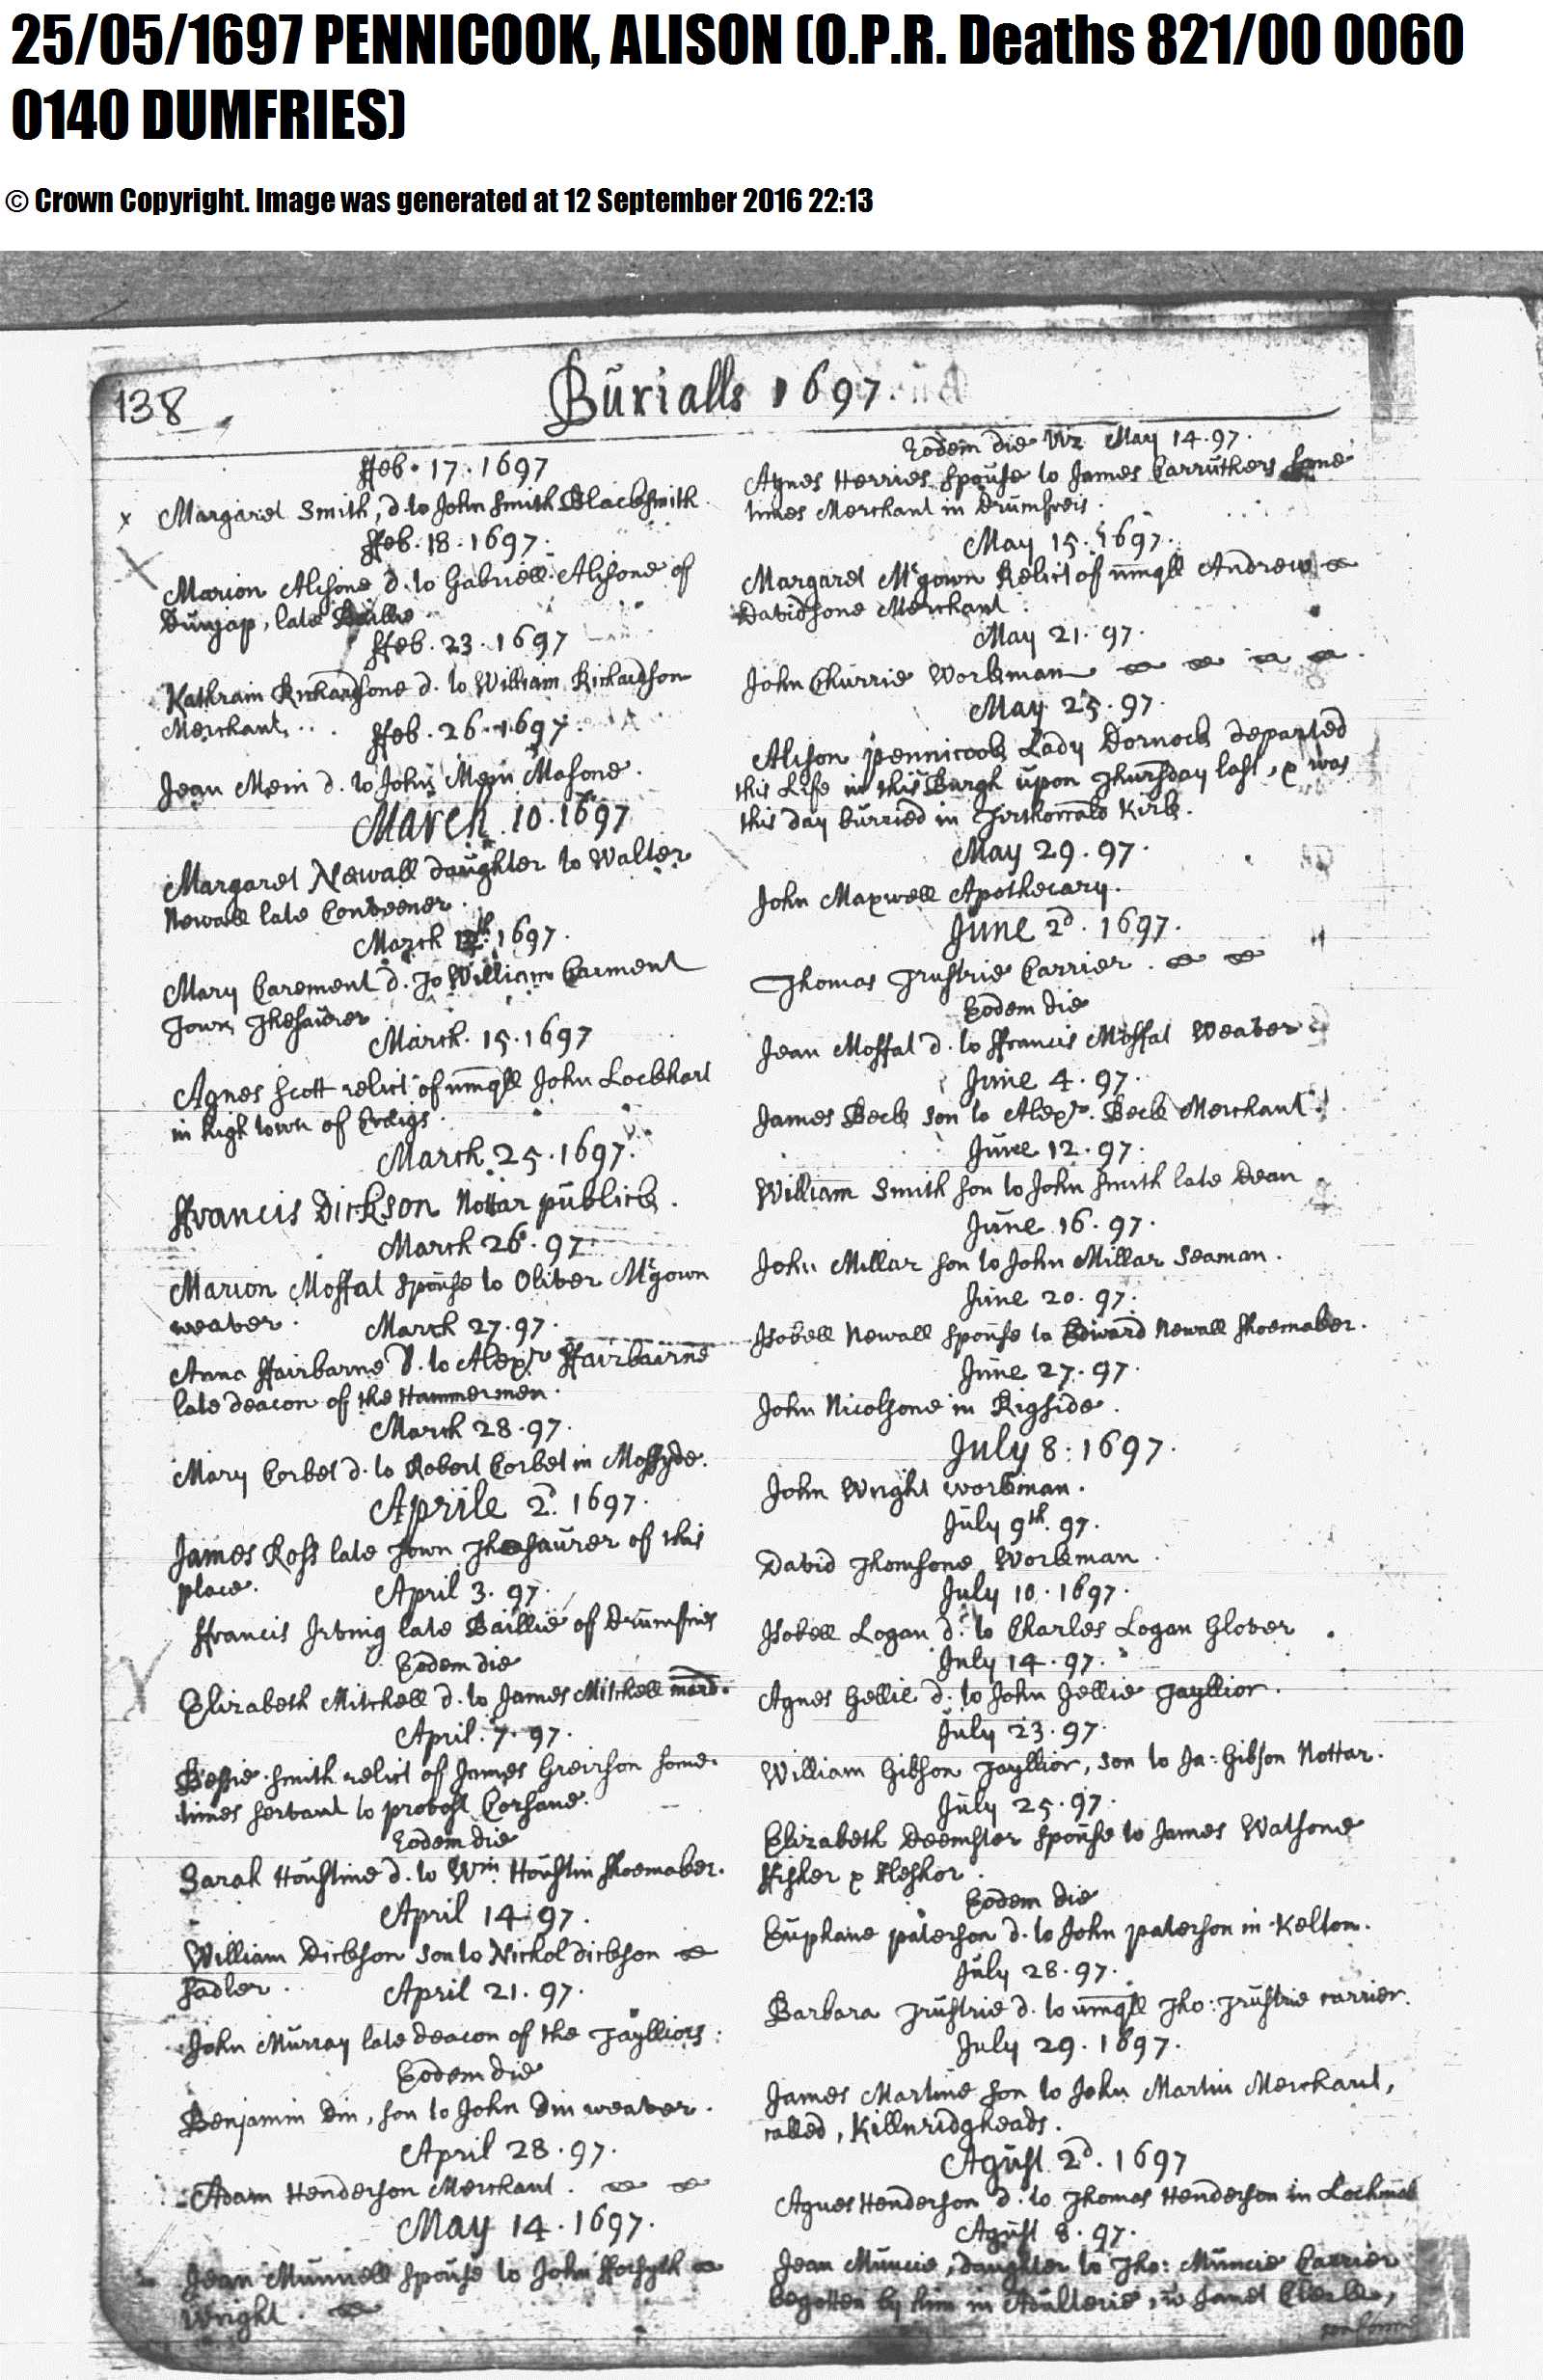 25/05/1697 PENNICOOK, ALISON (O.P.R. Deaths 821/00 0060
0140 DUMFRIES)
© Crown Copyright. Image was generated at 12 September 2016 22:13
138
Burialls 1697
ffeb. 17. 1697
Margaret Smith, d. to John Smith Blacksmith
ffeb. 18. 1697.
Marion Alisone d. to Gabriell Alisone of
Dunjop, late Baillie
ffeb. 23. 1697
Kathrain Richardsone d. to William Richardson
Merchant.
ffeb. 26. 1697.
Jean Mein d. to John Mein Masone.
March. 10. 1697
Margaret Newall daughter to Walter
Newall late Conveener.
March 12th. 1697.
Mary Carement d. To William Carment
Town Thesaurer.
March. 15. 1697
Agnes Scott relict of umqll John Lockhart
in high town of Craigs.
March. 25. 1697.
ffrancis Dickson Nottar publick.
March 26. 97.
Marion Moffat spouse to Oliver Mcgown
weaver.
March 27. 97.
Anna ffairbarne d. to Alexr ffairbairne
late deacon of the Hammermen.
March 28. 97.
Mary Corbet d. to Robert Corbet in Mossyde.
Aprile 2d. 1697.
James Ross late Town Thesaurer of this
place.
April 3. 97.
ffrancis Irving late Baillie of Drumfries
Eodem die
Elizabeth Mitchell d. to James Mitchell merd.
April. 7. 97.
Bessie Smith relict of James Greirson some-
times servant to provost Corsane.
Eodem die
Sarah Houstine d. to Wm. Houstin shoemaker.
April 14. 97.
William Dickson son to Nichol dickson
sadler.
April 21. 97.
John Murray late deacon of the Taylliors.
Eodem die
Benjamin Din, son to John Din weaver.
April 28. 97.
Adam Henderson Merchant.
May 14. 1697.
Jean Munnell spouse to John fforsyth
wright.
Eodem die Viz May 14. 97.
Agnes Herries spouse to James Carruthers some
times Merchant in Drumfreis.
May 15. 1697.
Margaret Mcgown Relict of umqll Andrew
Davidsone Merchant.
May 21. 97.
John Churrie Workman
May 25. 97.
Alison pennicook Lady Dornock departed
this Life in this Burgh upon Thursday last, & was
this day burried in Kirk.
May 29. 97.
John Maxwell Apothecary.
June 2d. 1697.
Thomas Trustrie Carrier.
Eodem die
Jean Moffat d. to ffrancis Moffat Weaver
June 4. 97.
James Beck son to Alexr. Beck Merchant
June 12. 97.
William Smith son to John Smith late Dean
June 16. 97.
John Millar son to John Millar Seaman.
June 20. 97.
Isobell Newall spouse to Edward Newall shoemaker.
June 27. 97.
John Nicolsone in Rigside.
July 8. 1697.
John Wright workman.
July 9th. 97.
David Thomsone Workman
July 10. 1697.
Isobell Logan d. to Charles Logan Glover
July 14. 97.
Agnes Gellie d. to John Gellie Tayllior.
July 23. 97.
William Gibson Tayllior, son to Ja: Gibson Nottar.
July 25. 97.
Elizabeth Deemster spouse to James Watsone
ffisher & fleshor.
Eodem die
Euphane paterson d. to John paterson in Kelton.
July 28. 97.
Barbara Trustrie d. to umqll Tho: Trustrie carrier.
July 29. 1697.
James Martine son to John Martin Merchant,
called, Killnridgheads.
Agust 2d. 1697
Agnes Henderson d. to Thomas Henderson in
Agust 8. 97.
Jean Muncie, daughter to Tho: Muncie Carrier
begotten by him in Adulterie, w Janet Clerk,